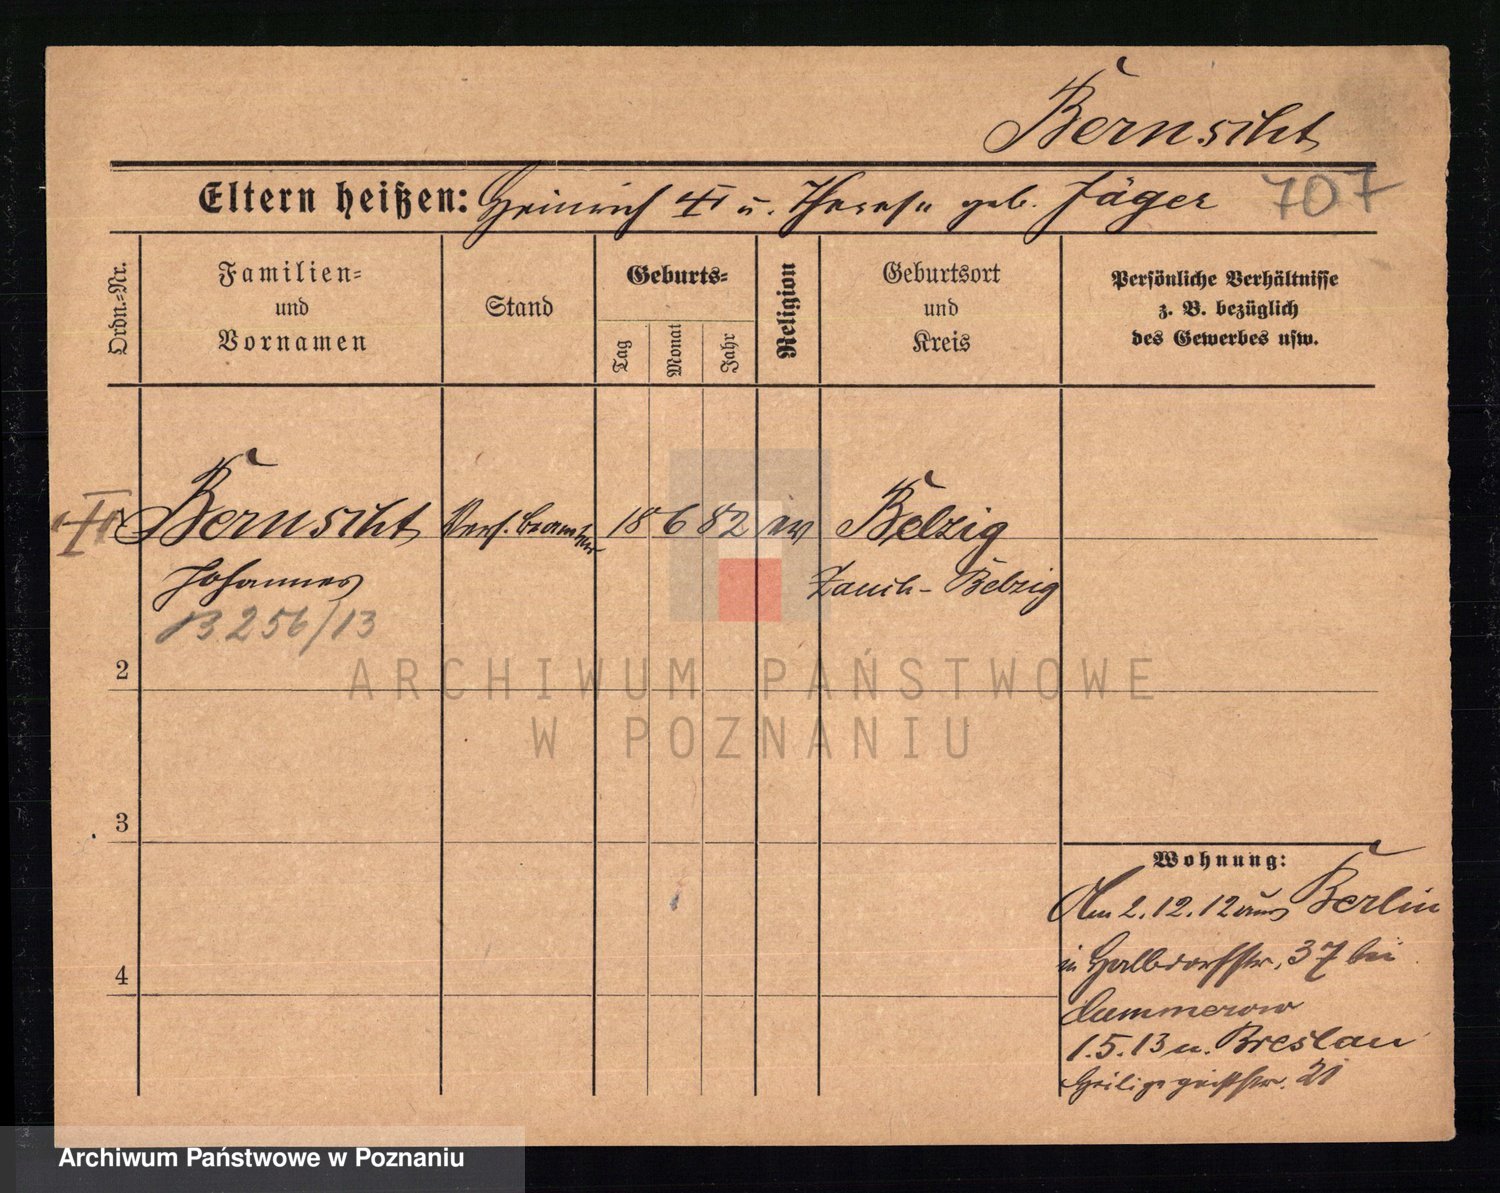 Bernsiht
Eltern heißen: Heinrich u. Therese geb. Jäger 707
Ordn.-Nr.
Familien-
und
Vornamen
Stand
Geburts-
Tag
Monat
Jahr
Religion
Geburtsort
und
Kreis
Persönliche Verhältnisse
z. B. bezüglich
des Gewerbes usw.
Bernsiht
Johannes
B 256/13
Vers. beamter
18 6 82 ev
Belzig
Zauch-Belzig
2
3
4
Wohnung:
Am 2.12.12 aus Berlin
in Halbdorfstr. 37 bei
Cummerow
1.5.13 n. Breslau
Heiligegeiststr. 21
ARCHIWUM PAŃSTWOWE
W POZNANIU
Archiwum Państwowe w Poznaniu